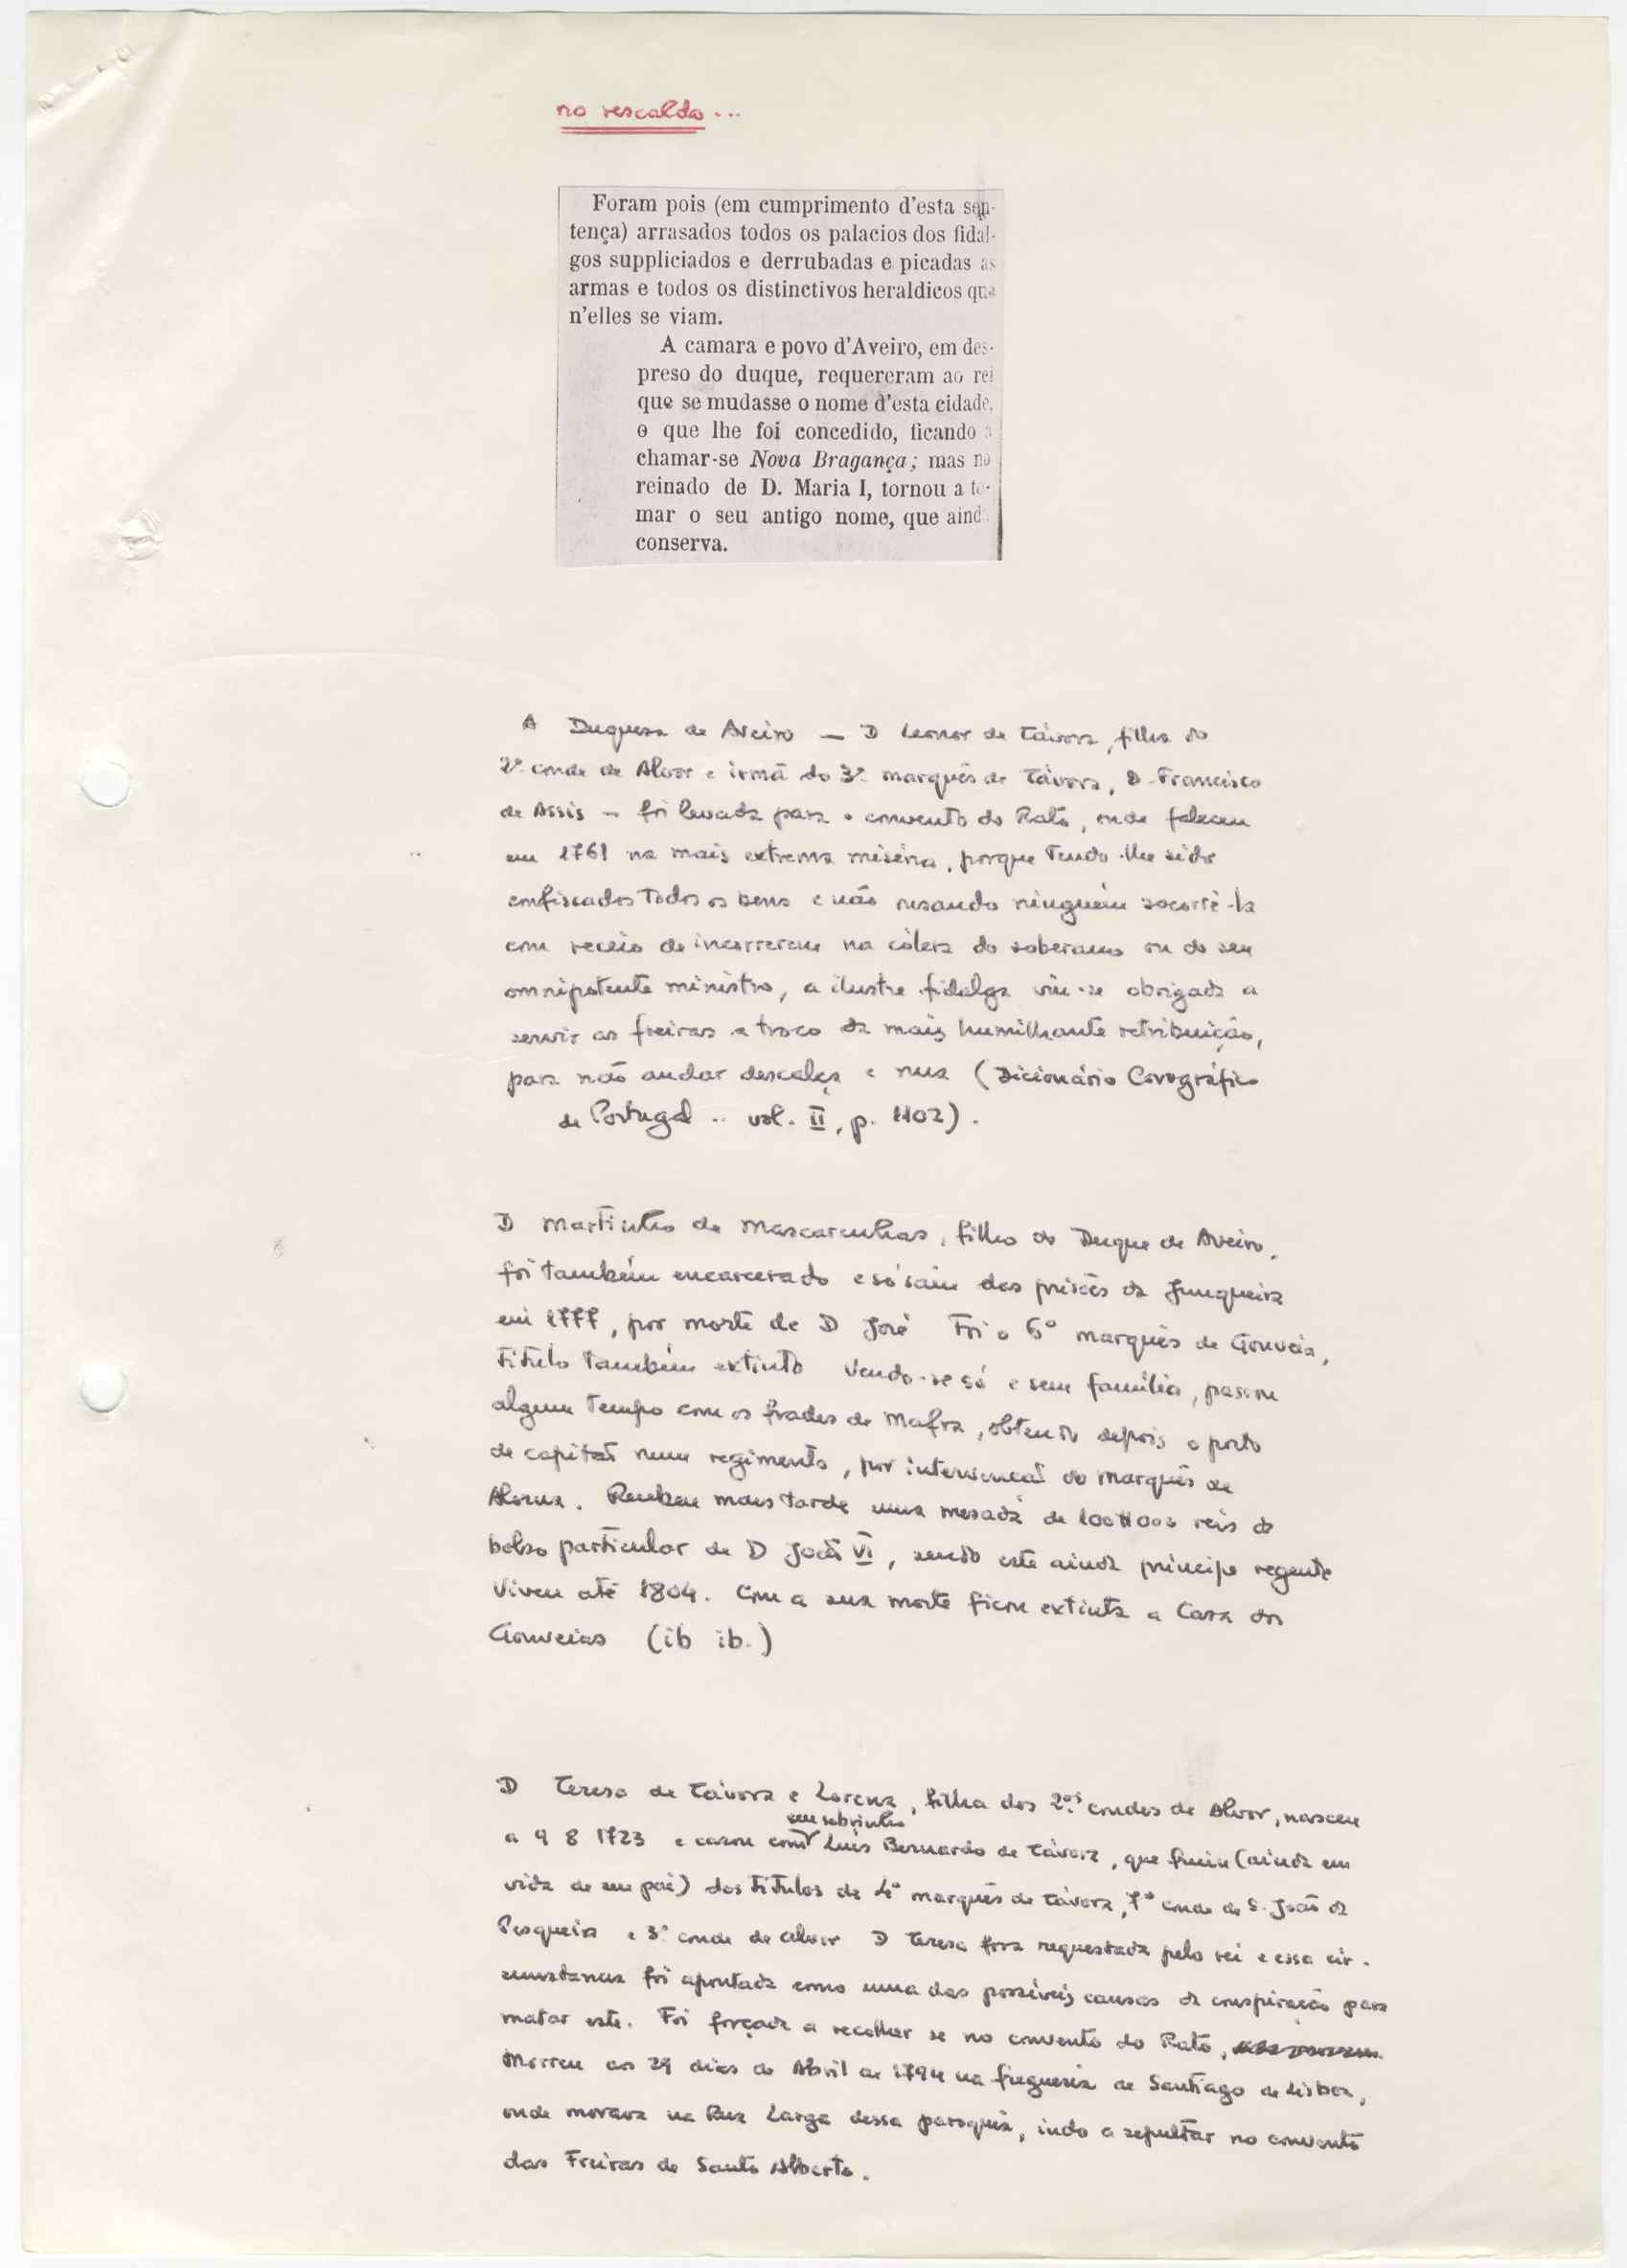 no rescaldo...
Foram pois (em cumprimento d'esta sen-
tença) arrasados todos os palacios dos fidal-
gos suppliciados e derrubadas e picadas as
armas e todos os distinctivos heraldicos que
n'elles se viam.
A camara e povo d'Aveiro, em des-
preso do duque, requereram ao rei
que se mudasse o nome d'esta cidade,
o que lhe foi concedido, ficando a
chamar-se Nova Bragança; mas no
reinado de D. Maria I, tornou a to-
mar o seu antigo nome, que aind
conserva.
A Duquesa de Aveiro — D Leonor de Távora, filha do
2º conde de Alvor e irmã do 3º marquês de Távora, D. Francisco
de Assis — foi levada para o convento do Rato, onde faleceu
em 1761 na mais extrema miséria, porque tendo-lhe sido
confiscados todos os bens e não ousando ninguém socorrê-la
com receio de incorrerem na cólera do soberano ou do seu
omnipotente ministro, a ilustre fidalga viu-se obrigada a
servir as freiras a troco da mais humilhante retribuição,
para não andar descalça e nua (Dicionário Corográfico
de Portugal .. vol. II, p. 1102).
D Martinho de Mascarenhas, filho do Duque de Aveiro,
foi também encarcerado e só saiu das prisões da Junqueira
em 1777, por morte de D José Foi o 6º marquês de Gouveia,
título também extinto Vendo-se só e sem família, passou
algum tempo com os frades de Mafra, obtendo depois o posto
de capitão num regimento, por intervenção do marquês de
Alorna. Recebeu mais tarde uma mesada de 100#000 reis do
bolso particular de D João VI, sendo este ainda príncipe regente
Viveu até 1804. Com a sua morte ficou extinta a Casa dos
Gouveias (ib ib.)
D Teresa de Távora e Lorena, filha dos 2ºs condes de Alvor, nasceu
seu sobrinho
a 9 8 1723 e casou com Luís Bernardo de Távora, que fruiu (ainda em
vida de seu pai) dos títulos de 4º marquês de Távora, 7º conde de S. João da
Pesqueira e 3º conde de Alvor D Teresa fora requestada pelo rei e essa cir-
cunstancia foi apontada como uma das possíveis causas da conspiração para
matar este. Foi forçada a recolher se no convento do Rato,
Morreu aos 29 dias de Abril de 1794 na freguesia de Santiago de Lisboa,
onde morava na Rua Larga dessa paroquia, indo a sepultar no convento
das Freiras de Santo Alberto.